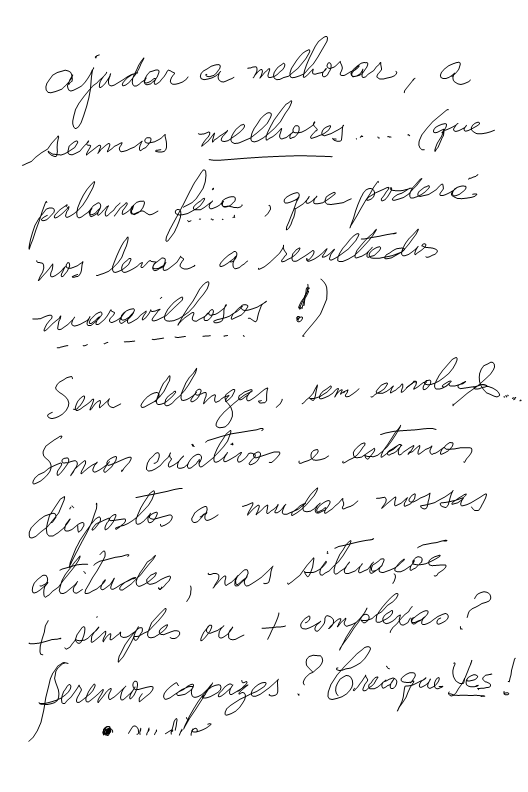 ajudar a melhorar, a
sermos melhores .... (que
palavra feia, que poderá
nos levar a resultados
maravilhosos !)
Sem delongas, sem enrolação...
Somos criativos e estamos
dispostos a mudar nossas
atitudes, nas situações
+ simples ou + complexas?
Seremos capazes? Creio que Yes!